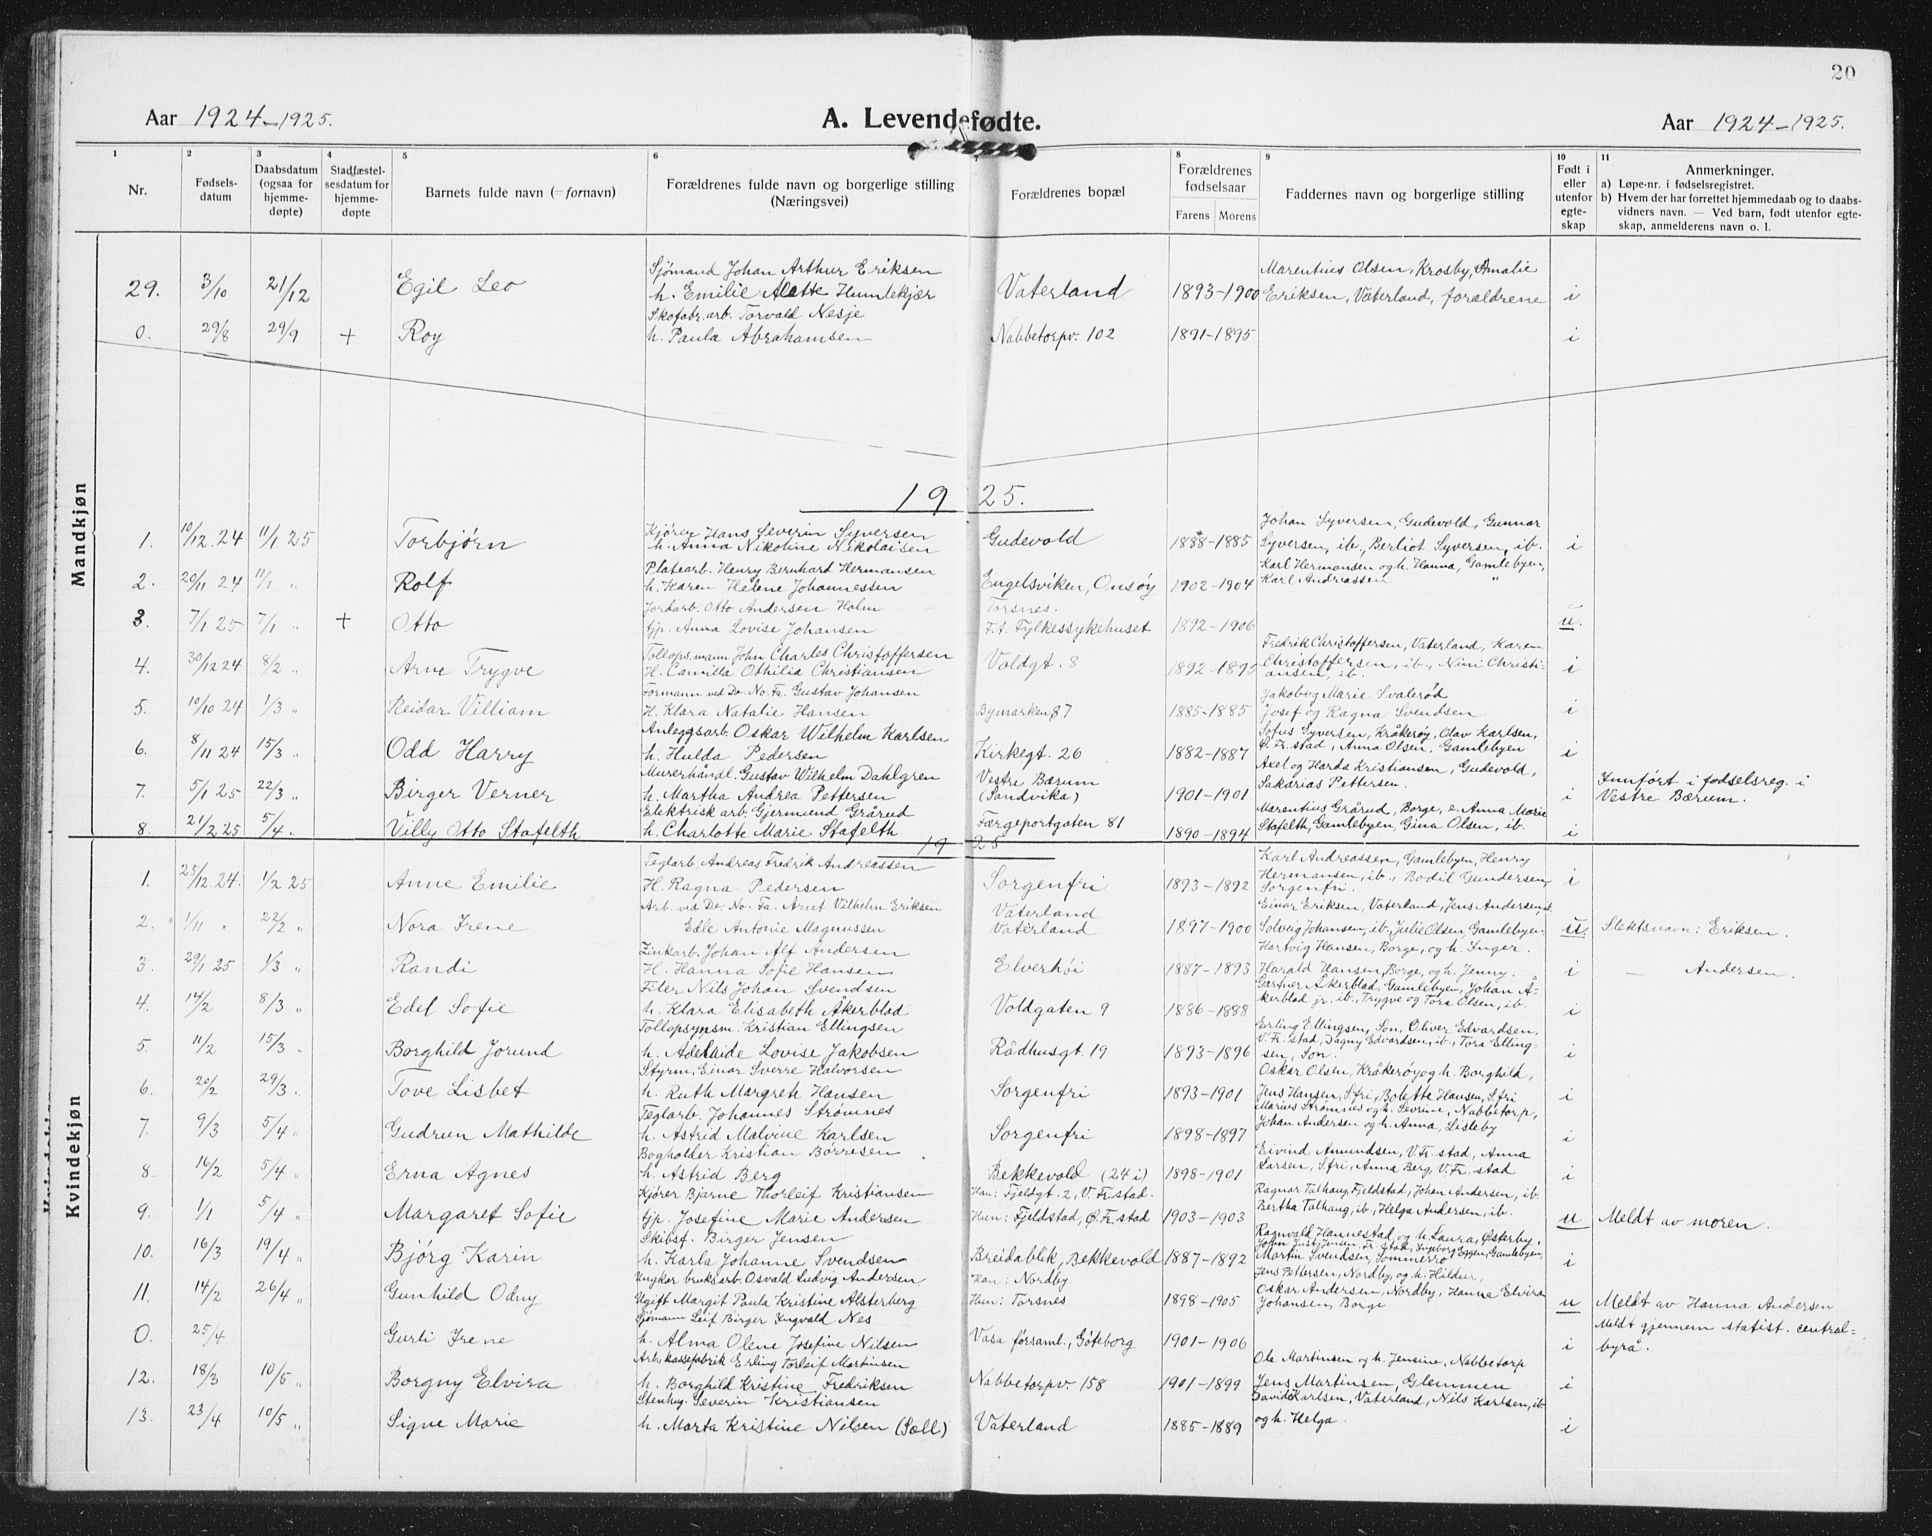 20
Aar 1924-1925. A. Levendefødte. Aar 1924-1925.
1 2 3 4 5 6 8 9 10 11
Nr. Fødsels-datum Daabsdatum (ogsaa for hjemme-døpte) Stadfæstel-sesdatum for hjemme-døpte Barnets fulde navn (= fornavn) Forældrenes fulde navn og borgerlige stilling (Næringsvei) Forældrenes bopæl Forældrenes fødselsaar Farens Morens Faddernes navn og borgerlige stilling Født i eller utenfor egte-skap Anmerkninger.
a) Løpe-nr. i fødselsregistret.
b) Hvem der har forrettet hjemmedaab og to daabs-
vidners navn. — Ved barn, født utenfor egte-
skap, anmelderens navn o. l.
Mandkjøn
Sjømand Johan Arthur Eriksen Marentius Olsen, Krosby, Amalie
29. 3/10 21/12 Egil Leo h. Emilie Alette Humlekjær Vaterland 1893-1900 Eriksen, Vaterland, forældrene i
Skofabr.arb. Torvald Nesje
0. 29/8 29/9 + Roy h. Paula Abrahamsen Nabbetorpv. 102 1891-1895 i
1925.
Kjører Hans Severin Syversen Johan Syversen, Gudevold, Gunnar
1. 10/12 24 11/1 25 Torbjørn h. Anna Nikoline Nikolaisen Gudevold 1888-1885 Syversen, ib., Berliot Syversen, ib. i
Platearb. Henry Bernhard Hermansen Karl Hermansen og h. Hanna, Gamlebyen,
2. 20/11 24 11/1 " Rolf h. Karen Helene Johannessen Engelsviken, Onsøy 1902-1904 Karl Andreassen "
Jordarb. Otto Andersen Holm Torsnes.
3. 7/1 25 7/1 " + Otto tjp. Anna Lovise Johansen F.t. Fylkessykehuset 1872-1906 u.
Tollops.mann John Charles Christoffersen Fredrik Christoffersen, Vaterland, Karen
4. 30/12 24 8/2 " Arne Trygve H. Camilla Othilia Christiansen Voldgt. 8 1892-1895 Christoffersen, ib., Nini Christi-ansen, ib. i
Formann ved De. No. Fa. Gustav Johansen Jakob og Marie Svalerød
5. 10/10 24 1/3 " Reidar Villiam H. Klara Natalie Hansen Bymarken 87 1885-1885 Josef og Ragna Svendsen i
Anleggsarb. Oskar Wilhelm Karlsen Sofus Syversen, Kråkerøy, Olav Karlsen,
6. 8/11 24 15/3 " Odd Harry h. Hulda Pedersen Kirkegt. 26 1882-1887 Ø. Fr.stad, Anna Olsen, Gamlebyen i
Murerhåndl. Gustav Wilhelm Dahlgren Vestre Bærum Axel og Harda Kristiansen, Gudevold, Innført i fødselsreg. i
7. 5/1 25 22/3 " Birger Verner h. Martha Andrea Pettersen (Sandvika) 1901-1901 Sakarias Pettersen. i Vestre Bærum.
Elektrisk arb. Gjermund Grårud Marentius Grårud, Borge, e. Anna Marie
8. 21/2 25 5/4 . Villy Otto Stafelth h. Charlotte Marie Stafelth Færgeportgaten 81 1890-1894 Stafelth, Gamlebyen, Gina Olsen, ib. i
1925
Kvindekjøn
Teglarb. Andreas Fredrik Andreassen Karl Andreassen, Gamlebyen, Henry
1. 25/12 24. 1/2 25 Anne Emilie H. Ragna Pedersen Sorgenfri 1893-1892 Hermansen, ib., Bodil Gundersen, Sorgenfri. i
Arb. ved De. No. Fa. Arnt Vilhelm Eriksen Vaterland Einar Eriksen, Vaterland, Jens Andersen, ib.
2. 1/11 " 22/2 " Nora Irene Edle Antonie Magnussen Vaterland 1897-1900 Solveig Johansen, ib., Julie Olsen, Gamlebyen, u Slektsnavn: Eriksen.
Zinkarb. Johan Alf Andersen Hartvig Hansen, Borge, og h. Inger.
3. 29/1 25 1/3 " Randi H. Hanna Sofie Hansen Elverhöi 1887-1893 Harald Hansen, Borge, og h. Jenny. i — Andersen.
Filer Nils Johan Svendsen Gartner Åkerblad, Gamlebyen, Johan Å-
4. 14/2 8/3 " Edel Sofie h. Klara Elisabeth Åkerblad Voldgaten 9 1886-1888 kerblad jr. ib., Trygve og Tora Olsen, ib. i
Tollopsynsm. Kristian Ellingsen Erling Ellingsen, Son, Oliver Edvardsen,
5. 11/2 15/3 . Borghild Jorund h. Adelaide Lovise Jakobsen Rådhusgt. 19 1893-1896 V. Fr. stad, Dagny Edvardsen, ib., Tora Elling-sen, Son. i
Styrm. Einar Sverre Halvorsen Oskar Olsen, Kråkerøy og h. Borghild,
6. 20/2 29/3 . Tove Lisbet h. Ruth Margreth Hansen Sorgenfri 1893-1901 Jens Hansen, S.fri, Bolette Hansen, S.fri i
Teglarb. Johannes Strømnes Marius Strømnes og h. Severine, Nabbetorp,
7. 9/3 5/4 " Gudrun Mathilde h. Astrid Malvine Karlsen Sorgenfri 1898-1897 Johan Andersen og h. Anna, Lisleby i
Bogholder Kristian Børresen Eivind Amundsen, V. Fr. stad, Anna
8. 16/2 5/4 " Erna Agnes h. Astrid Berg Bekkevold (24 i) 1898-1901 Larsen, S.fri, Anna Berg, V. Fr. stad i
Kjører Bjarne Thorleif Kristiansen Han: Fjeldgt. 2, V. Fr.stad. Ragnar Talhaug, Fjeldstad, Johan Andersen, ib.
9. 1/1 5/4 " Margaret Sofie tjp. Josefine Marie Andersen Hun: Fjeldstad, Ø. Fr.stad 1903-1903 Bertha Talhaug, ib., Helga Andersen, ib. u Meldt av moren.
Skibsf. Birger Jensen Ragnvald Hannestad og h. Laura, Østerby,
John Just Jensen, Fr. stad, Ingeborg Eggen, Gamlebyen,
10. 16/3 19/4 " Bjórg Karin h. Karla Johanne Svendsen Breidablik, Bekkevold 1887-1892 Martin Svendsen, Sommerro i
Ungkar bruksarb. Osvald Ludvig Andersen Han: Nordby Jens Pettersen, Nordby, og h. Hildur,
11. 14/2 26/4 " Gunhild Odny Ugift Margit Paula Kristine Alsterberg Hun: Torsnes 1898-1905 Oskar Andersen, Nordby, Hanna Elvira Johansen, Borge u Meldt av Hanna Andersen
Sjømann Leif Birger Ingvald Nes Meldt gjennem statist. central-
0. 25/4 Gurli Irene h. Alma Olene Josefine Nilsen Vasa församl., Göteborg 1901-1906 i byrå.
Arb. kassefabrik Erling Torleif Martinsen Ole Martinsen og h. Jensine, Nabbetorp
12. 18/3 10/5 " Borgny Elvira h. Borghild Kristine Fredriksen Nabbetorpv. 158 1901-1899 Jens Martinsen, Glemmen i
Stenhug. Severin Kristiansen David Karlsen, Vaterland, Nils Karlsen, ib.
13. 23/4 10/5 " Signe Marie h. Marta Kristine Nilsen (Sæll) Vaterland 1885-1889 og h. Helga. i